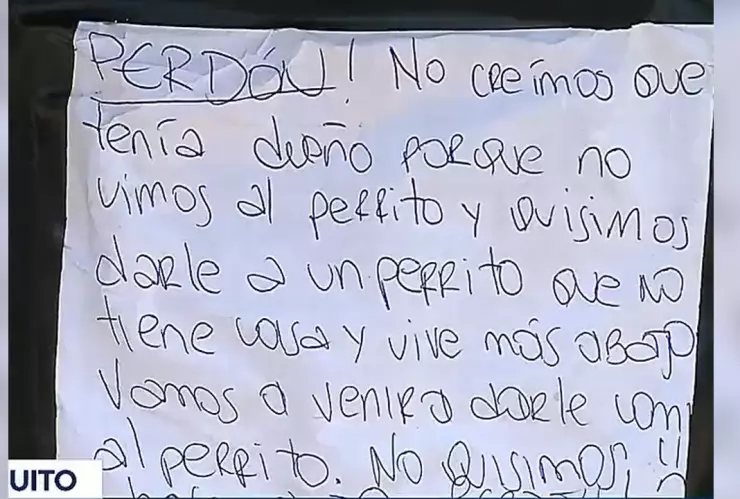 PERDÓN! No creímos que
tenía dueño porque no
vimos al perrito y quisimos
darle a un perrito que no
tiene casa y vive más abajo
Vamos a venir a darle com
al perrito. No quisimos
UITO